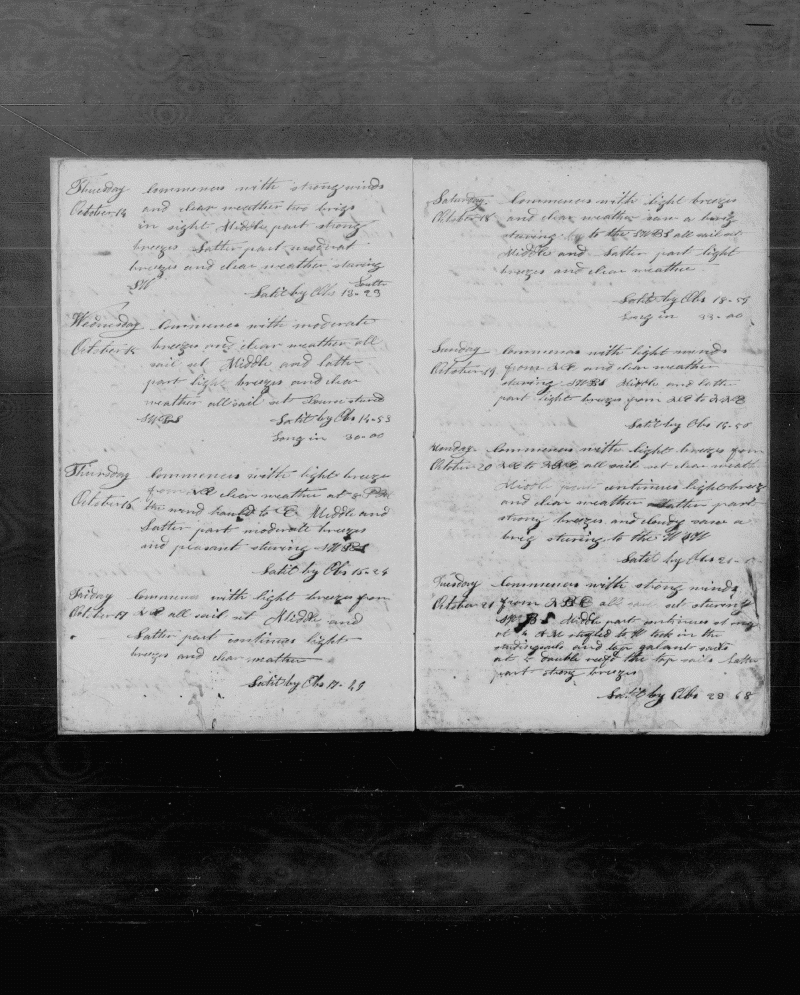 Thuesday Commences with strong winds
October 14 and clear weather two brigs
in sight Middle part strong
breezes Latter part moderat
breezes and clear weather stearing
SW
Latt by Obs 13-23 South
Wednesday Commences with moderate
October 15 breezes and clear weather all
sail set Middle and latter
part light breezes and clear
weather all sail set
SWBS Latit by Obs 14-53
Long in 30-00
Thursday Commences with light breeze
October 16 from clear weather at 8 PM
the wind hauld to E Middle and
Latter part moderate breezes
and pleasant stearing SWBS
Latit by Obs 15-24
Friday Commences with light breezes from
October 17 all sail set Middle and
Latter part continues light
breezes and clear weather
Latit by Obs 17-49
Saturday Commences with light breezes
October 18 and clear weather saw a brig
stearing to the SWBS all sail set
Middle and Latter part light
breezes and clear weather
Latit by Obs 18-59
Long in 33-00
Sunday Commences with light winds
October 19 from NE and clear weather
stearing SWBS Middle and latter
part light breezes from NE to NNE
Latit by Obs
Monday Commences with light breezes from
October 20 NE to all sail set clear weath
Middle part continues light breez
and clear weather Latter part
strong breezes and cloudy saw a
brig stearing to the WSW
Latit by Obs 21
Tuesday Commences with strong winds
October 21 from NBE all sail set stearing
SWBS Middle part
at 4 to W took in the
studingsails and top galant sails
at double reeft the top sails Latter
part strong breezes
Latit by Obs 22 68